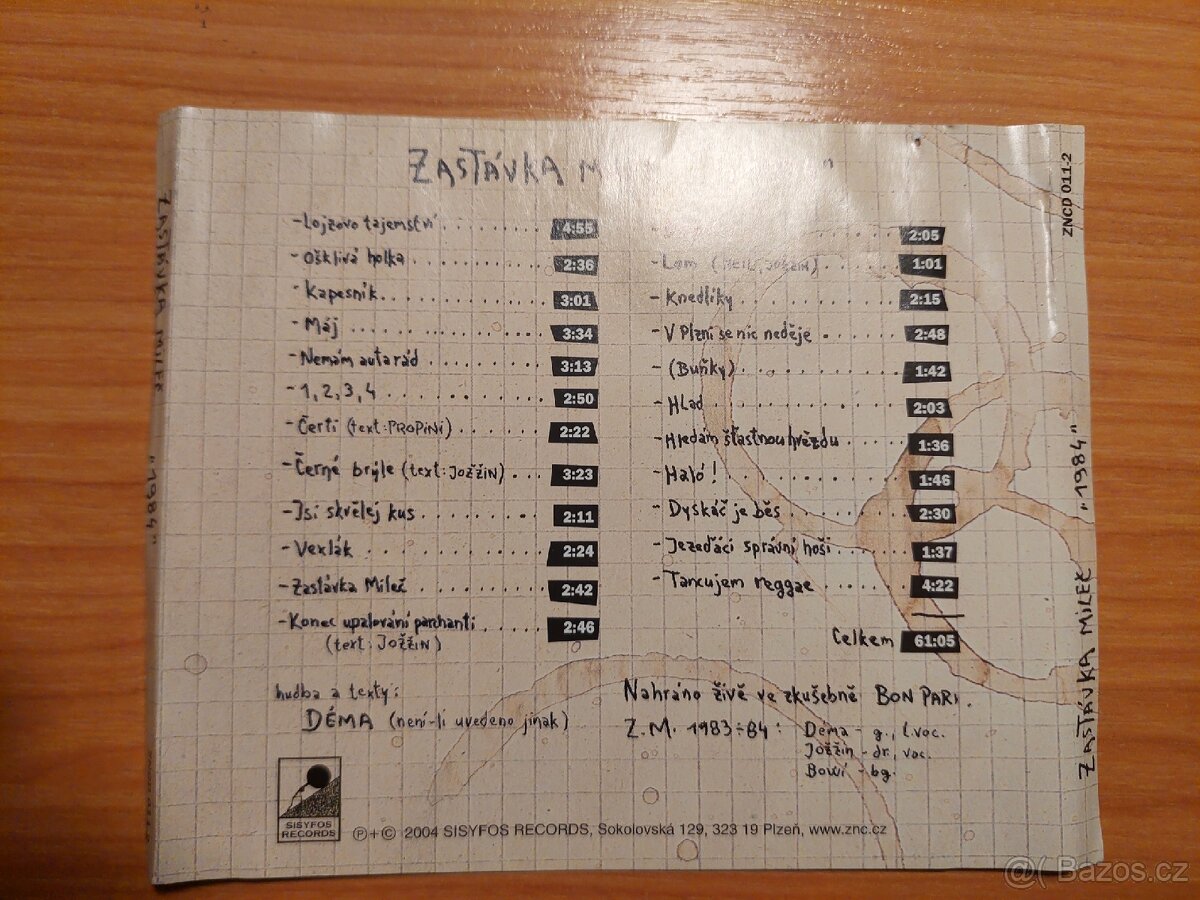 ZASTÁVKA M "
- Lojzovo tajemství 4:55
- Ošklivá holka 2:36
- Kapesník 3:01
- Máj 3:34
- Nemám auta rád 3:13
- 1, 2, 3, 4 2:50
- Čerti (text: PROPINI) 2:22
- Černé brýle (text: JOŽŽIN) 3:23
- Jsi skvělej kus 2:11
- Vexlák 2:24
- Zastávka Mileč 2:42
- Konec upalování parchanti 2:46
(text: JOŽŽIN)
2:05
- Lom ( JOŽŽIN) 1:01
- Knedlíky 2:15
- V Plzni se nic neděje 2:48
- (Buňky) 1:42
- Hlad 2:03
- Hledám šťastnou hvězdu 1:36
- Haló! 1:46
- Dyskáč je běs 2:30
- Jezeďáci správní hoši 1:37
- Tancujem reggae 4:22
Celkem 61:05
hudba a texty:
DÉMA (není-li uvedeno jinak)
Nahráno živě ve zkušebně BON PARI.
Z.M. 1983÷84: Déma - g., l.voc.
Jožžin - dr, voc.
Bowi - bg.
SISYFOS
RECORDS
℗+© 2004 SISYFOS RECORDS, Sokolovská 129, 323 19 Plzeň, www.znc.cz
ZASTÁVKA MILEČ "1984"
ZNCD 011-2
ZASTÁVKA MILEČ "1984"
@( Bazos.cz